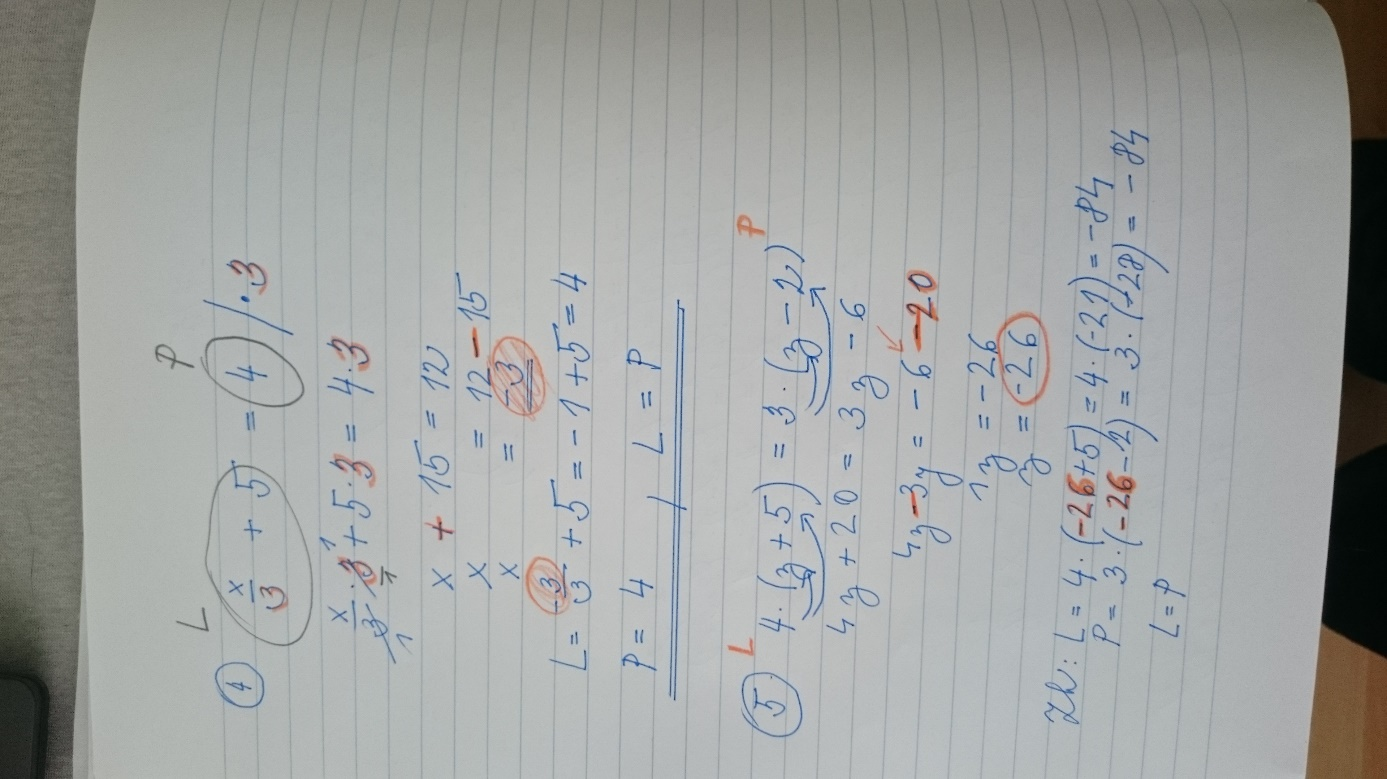 L P
④ x/3 + 5 = 4 / ·3
x/3 · 3 + 5·3 = 4·3
1 1 1
x + 15 = 12
x = 12 - 15
x = -3
L = -3/3 + 5 = -1 + 5 = 4
P = 4 / L = P
L P
⑤ 4·(y+5) = 3·(y-2)
4y + 20 = 3y - 6
4y - 3y = -6 - 20
1y = -26
y = -26
Zk: L = 4·(-26+5) = 4·(-21) = -84
P = 3·(-26-2) = 3·(-28) = -84
L = P